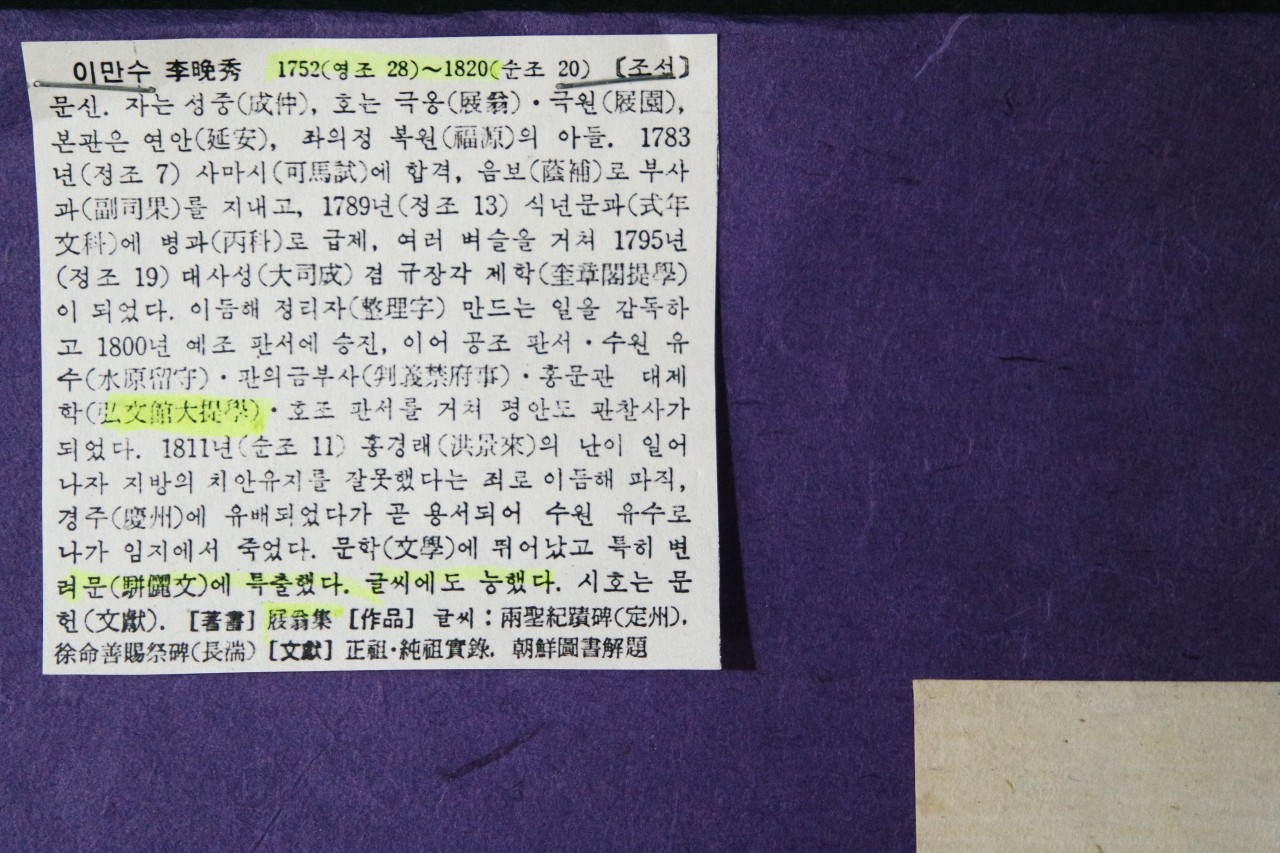 이만수 李晩秀 1752(영조 28)~1820(순조 20) 〔조선〕
문신. 자는 성중(成仲), 호는 극옹(屐翁)·극원(屐園),
본관은 연안(延安), 좌의정 복원(福源)의 아들. 1783
년(정조 7) 사마시(司馬試)에 합격, 음보(蔭補)로 부사
과(副司果)를 지내고, 1789년(정조 13) 식년문과(式年
文科)에 병과(丙科)로 급제, 여러 벼슬을 거쳐 1795년
(정조 19) 대사성(大司成) 겸 규장각 제학(奎章閣提學)
이 되었다. 이듬해 정리자(整理字) 만드는 일을 감독하
고 1800년 예조 판서에 승진, 이어 공조 판서·수원 유
수(水原留守)·판의금부사(判義禁府事)·홍문관 대제
학(弘文館大提學)·호조 판서를 거쳐 평안도 관찰사가
되었다. 1811년(순조 11) 홍경래(洪景來)의 난이 일어
나자 지방의 치안유지를 잘못했다는 죄로 이듬해 파직,
경주(慶州)에 유배되었다가 곧 용서되어 수원 유수로
나가 임지에서 죽었다. 문학(文學)에 뛰어났고 특히 변
려문(駢儷文)에 특출했다. 글씨에도 능했다. 시호는 문
헌(文獻). [著書] 屐翁集 [作品] 글씨:兩聖紀蹟碑(定州).
徐命善賜祭碑(長湍) [文獻] 正祖·純祖實錄. 朝鮮圖書解題